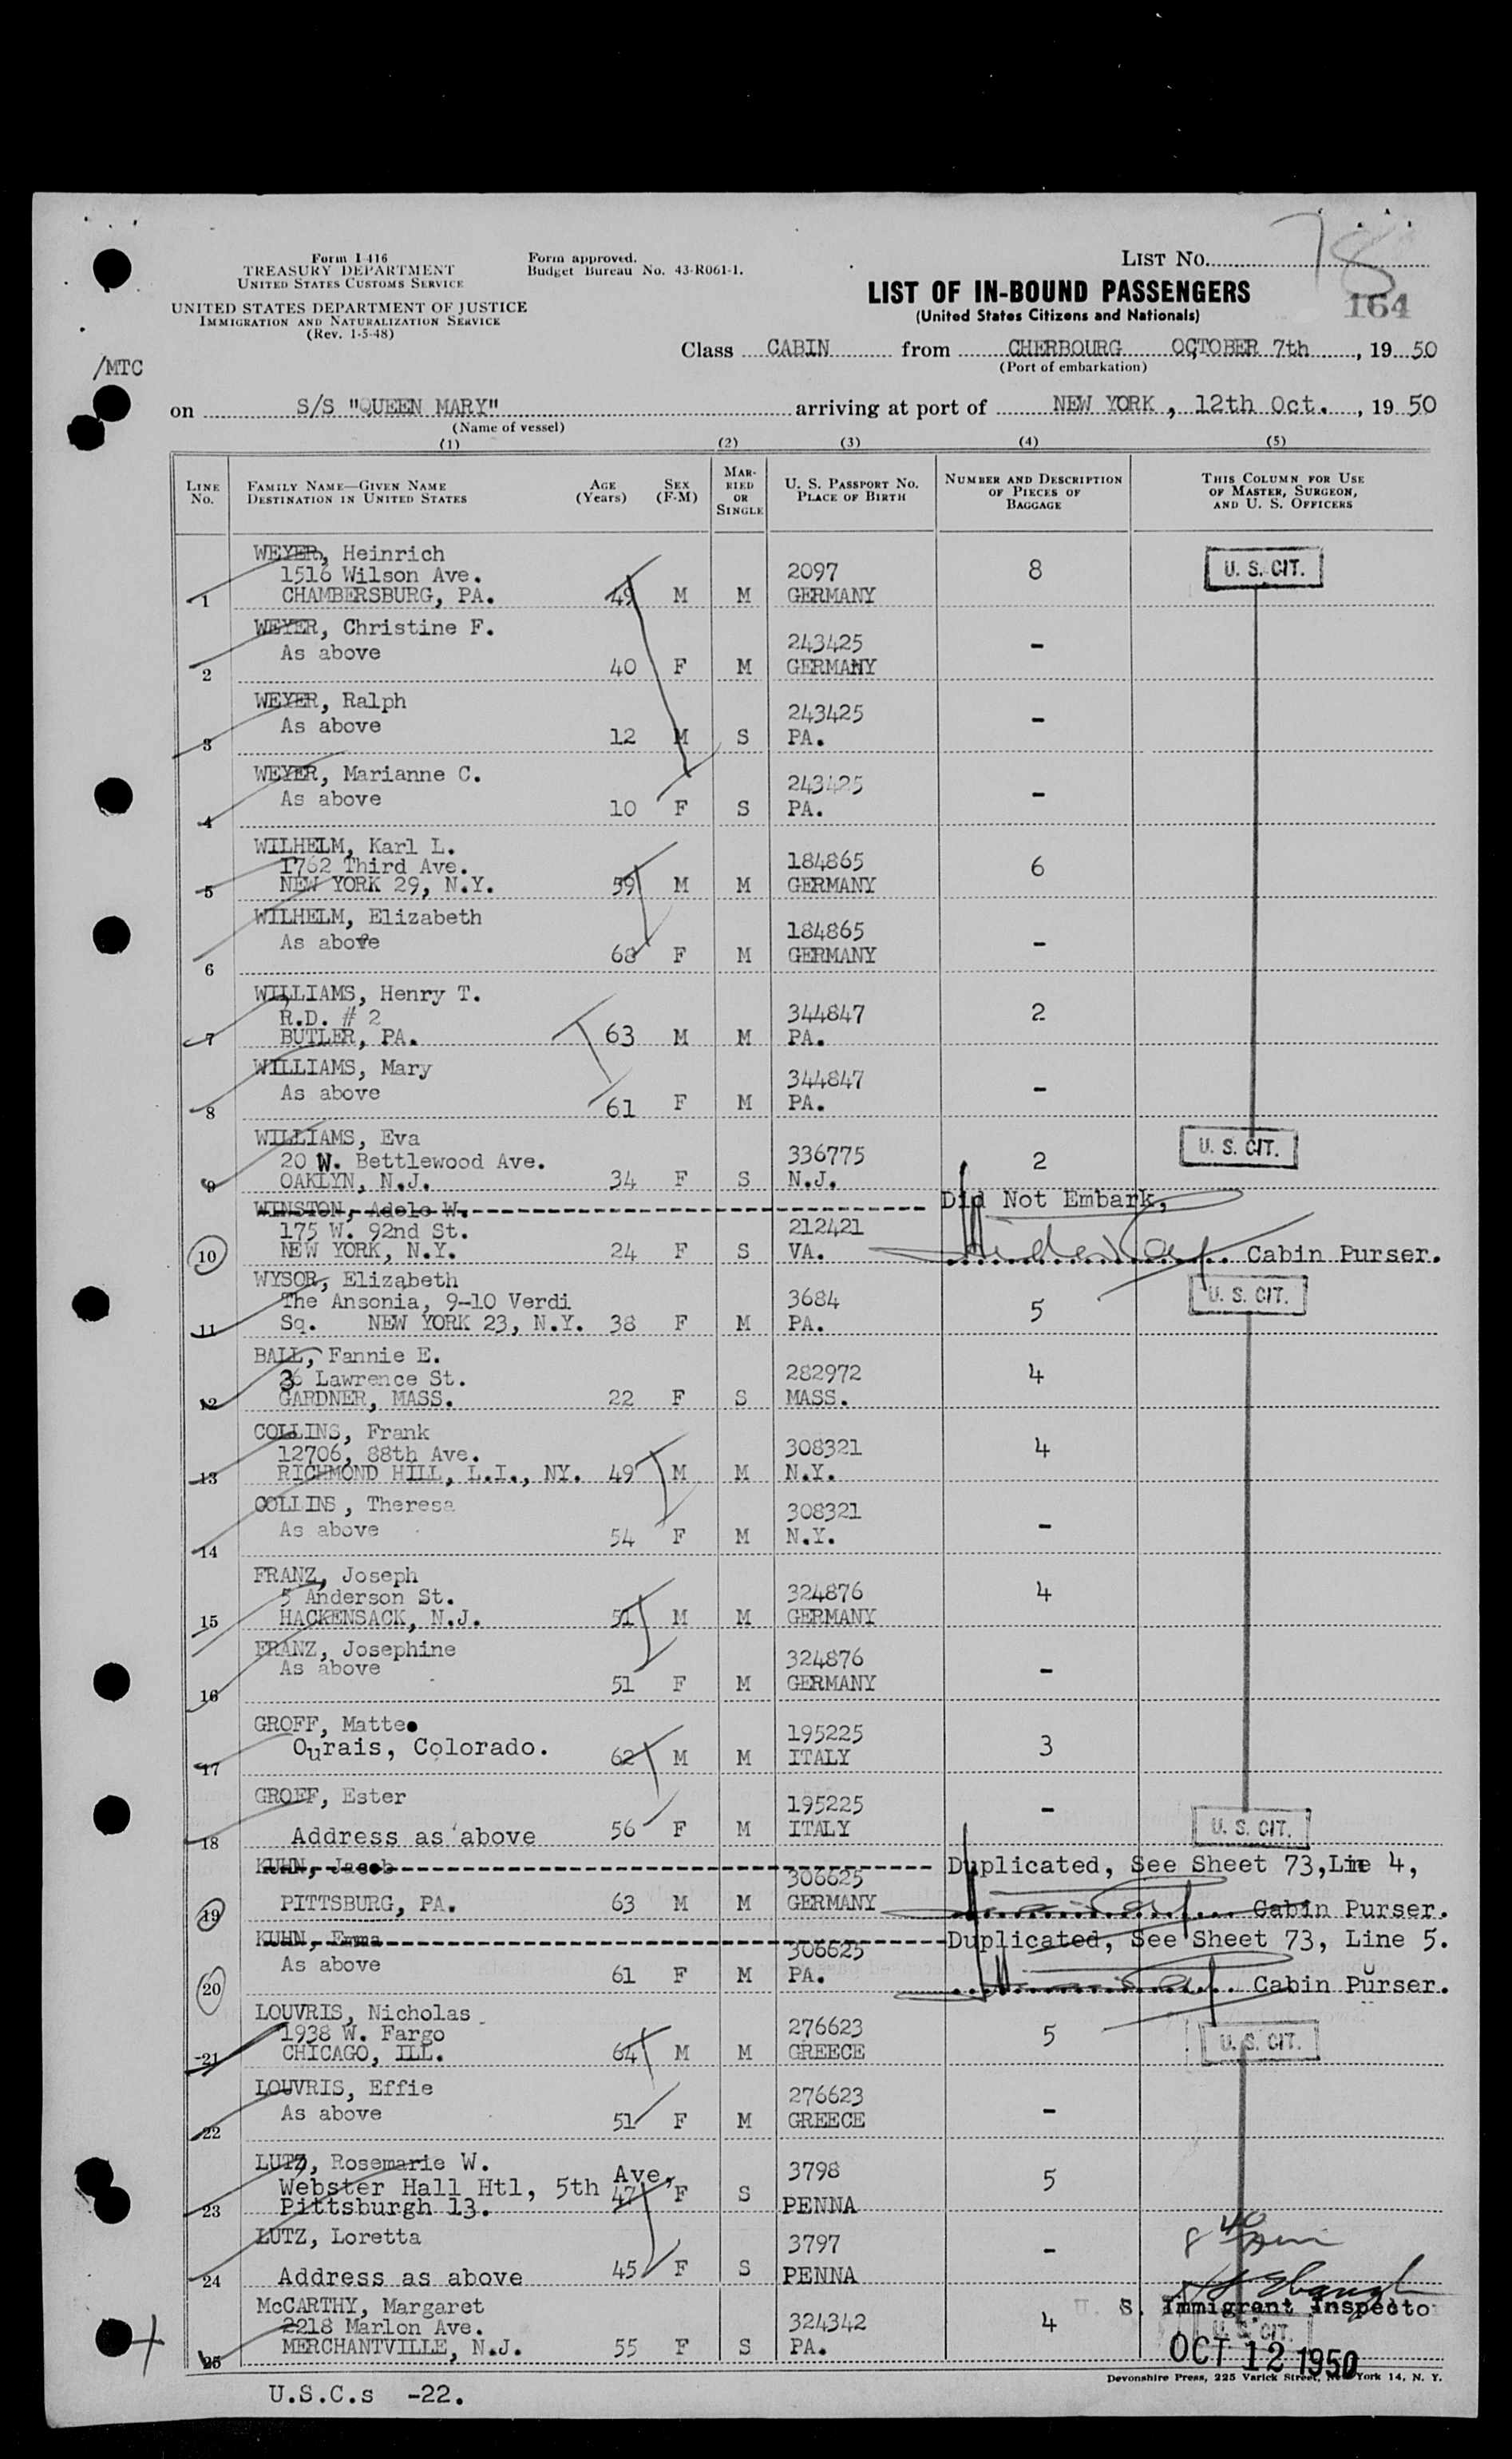 78
Form I-416
TREASURY DEPARTMENT
UNITED STATES CUSTOMS SERVICE
Form approved.
Budget Bureau No. 43-R061-1.
LIST NO.
UNITED STATES DEPARTMENT OF JUSTICE
IMMIGRATION AND NATURALIZATION SERVICE
(Rev. 1-5-48)
LIST OF IN-BOUND PASSENGERS
(United States Citizens and Nationals)
164
/MTC
Class CABIN from CHERBOURG OCTOBER 7th, 19 50
(Port of embarkation)
on S/S "QUEEN MARY" arriving at port of NEW YORK, 12th Oct., 19 50
(Name of vessel)
(1) (2) (3) (4) (5)
LINE NO.
FAMILY NAME—GIVEN NAME
DESTINATION IN UNITED STATES
AGE (Years)
SEX (F-M)
MARRIED OR SINGLE
U. S. PASSPORT NO.
PLACE OF BIRTH
NUMBER AND DESCRIPTION OF PIECES OF BAGGAGE
THIS COLUMN FOR USE OF MASTER, SURGEON, AND U. S. OFFICERS
WEYER, Heinrich
1516 Wilson Ave. 2097 8 U. S. CIT.
1 CHAMBERSBURG, PA. 49 M M GERMANY
WEYER, Christine F.
As above 243425 -
2 40 F M GERMANY
WEYER, Ralph
As above 243425 -
3 12 M S PA.
WEYER, Marianne C.
As above 243425 -
4 10 F S PA.
WILHELM, Karl L.
1762 Third Ave. 184865 6
5 NEW YORK 29, N.Y. 59 M M GERMANY
WILHELM, Elizabeth
As above 184865 -
6 68 F M GERMANY
WILLIAMS, Henry T.
R.D. # 2 344847 2
7 BUTLER, PA. 63 M M PA.
WILLIAMS, Mary
As above 344847 -
8 61 F M PA.
WILLIAMS, Eva
20 W. Bettlewood Ave. 336775 2 U. S. CIT.
9 OAKLYN, N.J. 34 F S N.J.
WINSTON, Adele W. Did Not Embark,
175 W. 92nd St. 212421
10 NEW YORK, N.Y. 24 F S VA. Cabin Purser.
WYSOR, Elizabeth
The Ansonia, 9-10 Verdi 3684 5 U. S. CIT.
11 Sq. NEW YORK 23, N.Y. 38 F M PA.
BALL, Fannie E.
36 Lawrence St. 282972 4
12 GARDNER, MASS. 22 F S MASS.
COLLINS, Frank
12706, 88th Ave. 308321 4
13 RICHMOND HILL, L.I., NY. 49 M M N.Y.
COLLINS, Theresa
As above 308321 -
14 54 F M N.Y.
FRANZ, Joseph
5 Anderson St. 324876 4
15 HACKENSACK, N.J. 51 M M GERMANY
FRANZ, Josephine
As above 324876 -
16 51 F M GERMANY
GROFF, Matteo
Ourais, Colorado. 195225 3
17 62 M M ITALY
GROFF, Ester
195225 - U. S. CIT.
18 Address as above 56 F M ITALY
KUHN, Jacob Duplicated, See Sheet 73, Line 4,
306625
19 PITTSBURG, PA. 63 M M GERMANY Cabin Purser.
KUHN, Emma Duplicated, See Sheet 73, Line 5.
As above 306625
20 61 F M PA. Cabin Purser.
LOUVRIS, Nicholas
1938 W. Fargo 276623 5 U. S. CIT.
21 CHICAGO, ILL. 64 M M GREECE
LOUVRIS, Effie
As above 276623 -
22 51 F M GREECE
LUTZ, Rosemarie W.
Webster Hall Htl, 5th Ave, 3798 5
23 Pittsburgh 13. 47 F S PENNA
LUTZ, Loretta
3797 -
24 Address as above 45 F S PENNA
McCARTHY, Margaret U. S. Immigrant Inspector
2218 Marlon Ave. 324342 4 U. S. CIT.
25 MERCHANTVILLE, N.J. 55 F S PA.
OCT 12 1950
Devonshire Press, 225 Varick Street, New York 14, N. Y.
U.S.C.s -22.